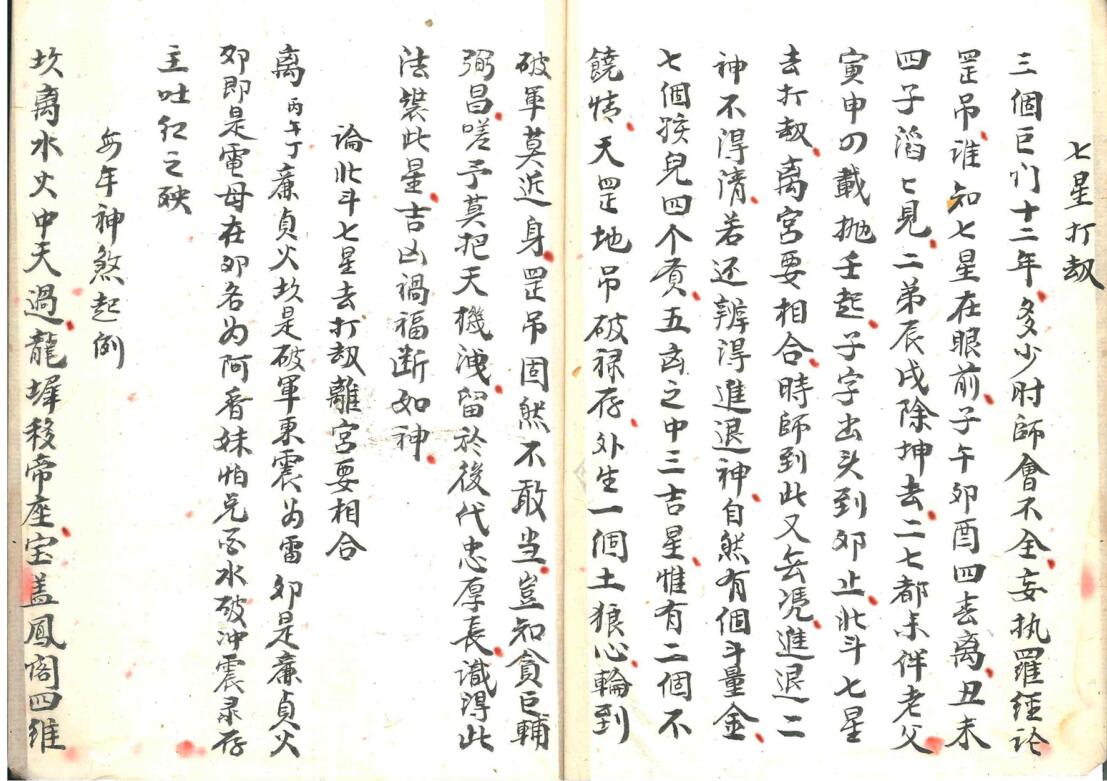 七星打刼
三個巨门十二年多少时師會不全妄执羅経论
罡吊谁知七星在眼前子午卯酉四去離丑未
四子滔七見二弟辰戌除坤去二七都未伴老父
寅申四載抛壬起子字出头到卯止北斗七星
去打刼离宮要相合時師到此又無凭進退二
神不淂清若还辨淂進退神自然有個斗量金
七個孩児四个贵五凶之中三吉星惟有二個不
饒情天罡地吊破禄存外生一個土狼心輪到
破軍莫近身罡吊固然不敢当豈知貪巨輔
弼昌嗟予莫把天機洩留於後代忠厚長識淂此
法裝此星吉凶禍福断如神
論北斗七星去打刼離宮要相合
离丙午丁廉貞火坎是破軍東震为雷卯是廉貞火
卯即是電母在卯名为阿香妹怕兑西水破冲震录存
主吐红之殃
每年神煞起例
坎离水火中天過龍墀移帝座宝盖鳳阁四維